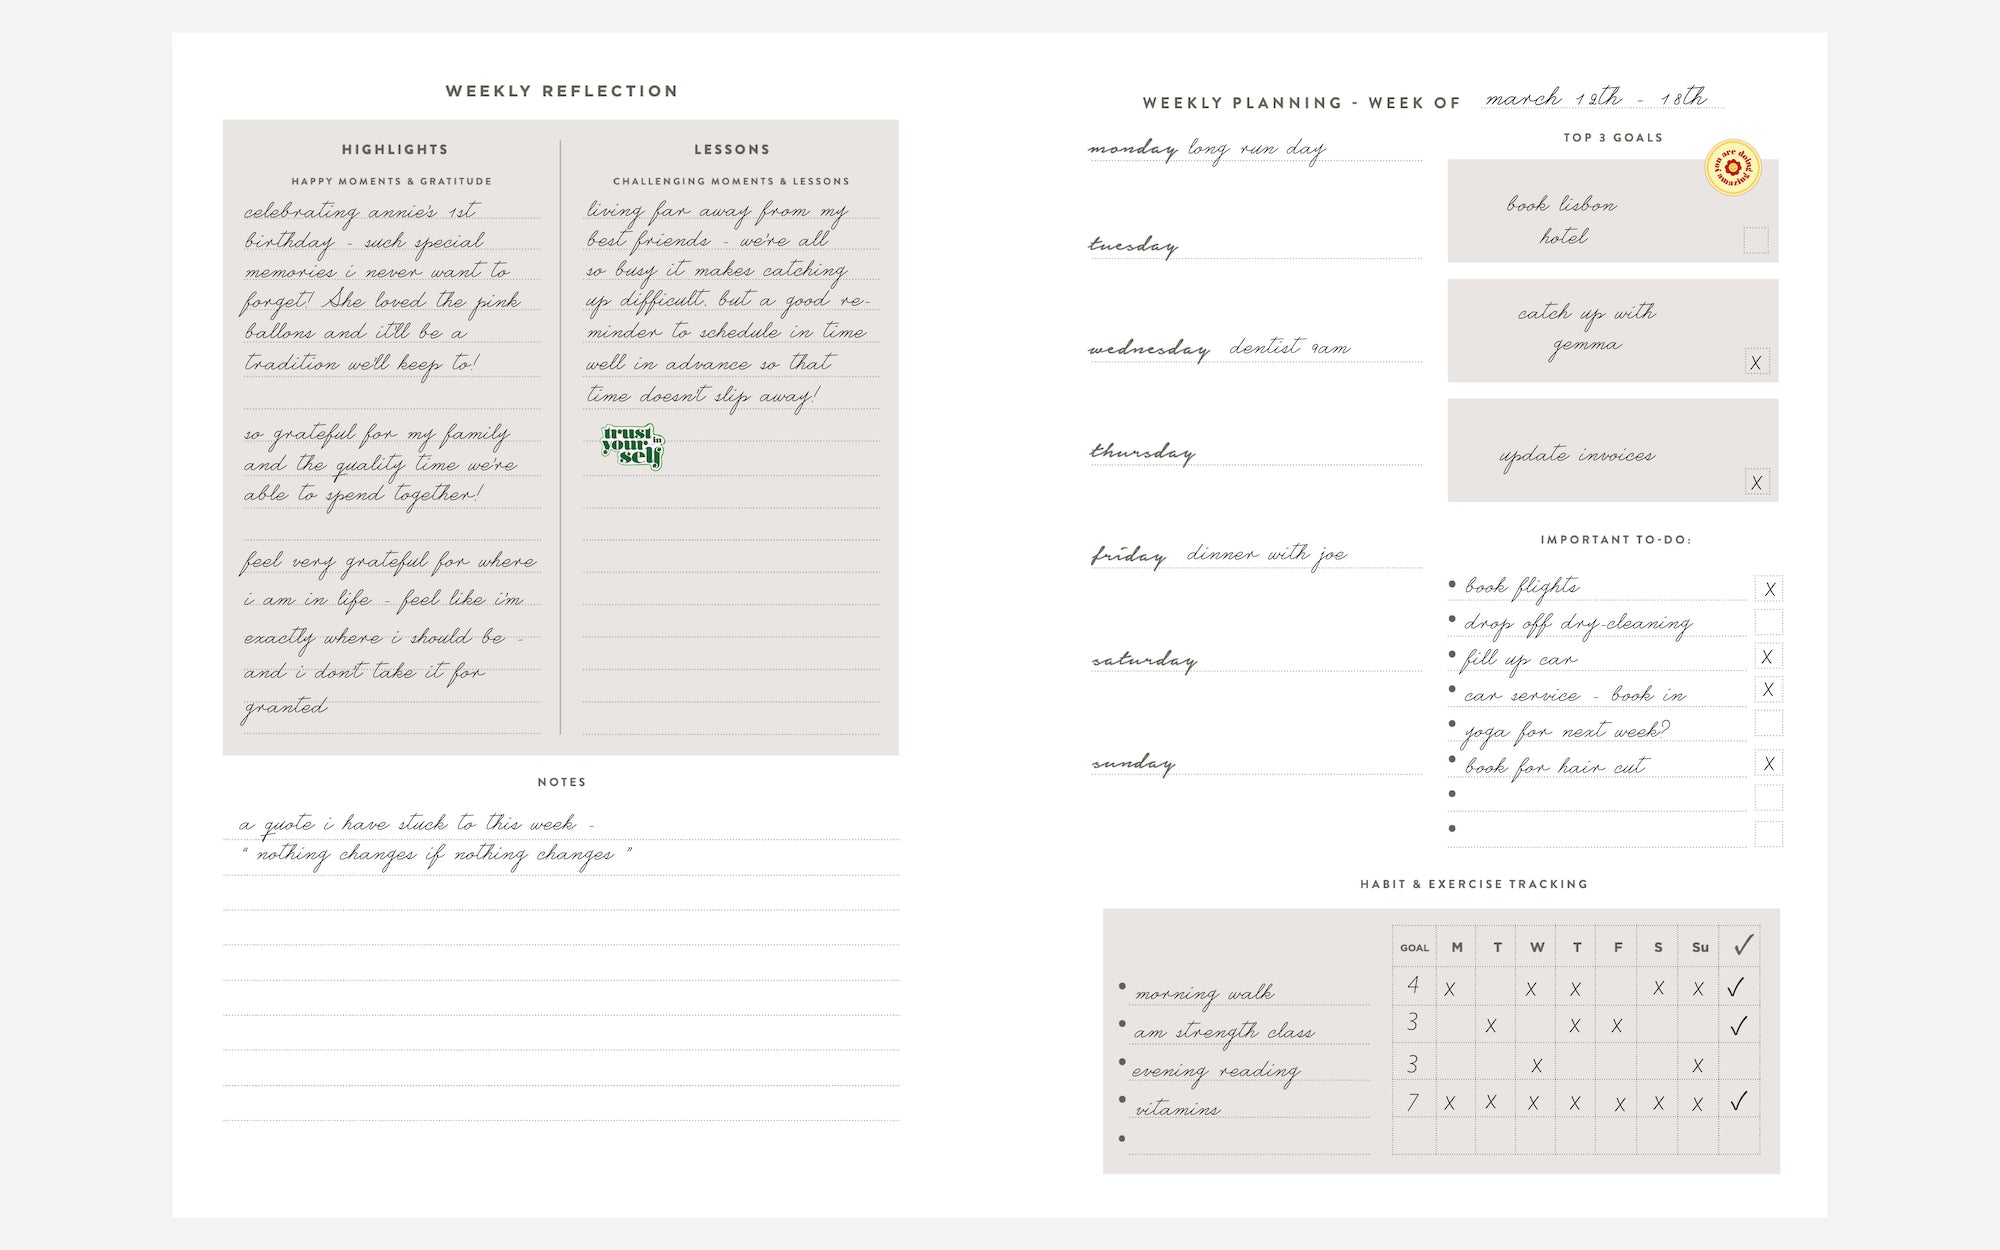 WEEKLY REFLECTION
HIGHLIGHTS
HAPPY MOMENTS & GRATITUDE
celebrating annie's 1st
birthday - such special
memories i never want to
forget! She loved the pink
ballons and it'll be a
tradition we'll keep to!
so grateful for my family
and the quality time we're
able to spend together!
feel very grateful for where
i am in life - feel like i'm
exactly where i should be -
and i don't take it for
granted
LESSONS
CHALLENGING MOMENTS & LESSONS
living far away from my
best friends - we're all
so busy it makes catching
up difficult, but a good re-
minder to schedule in time
well in advance so that
time doesn't slip away!
trust
in
your
self
NOTES
a quote i have stuck to this week -
" nothing changes if nothing changes "
WEEKLY PLANNING - WEEK OF march 12th - 18th
monday long run day
tuesday
wednesday dentist 9am
thursday
friday dinner with joe
saturday
sunday
TOP 3 GOALS
you are doing
amazing
book lisbon
hotel
catch up with
gemma
X
update invoices
X
IMPORTANT TO-DO:
book flights X
drop off dry-cleaning
fill up car X
car service - book in X
yoga for next week?
book for hair cut X
HABIT & EXERCISE TRACKING
GOAL M T W T F S Su ✓
morning walk 4 X X X X X ✓
am strength class 3 X X X ✓
evening reading 3 X X
vitamins 7 X X X X X X X ✓